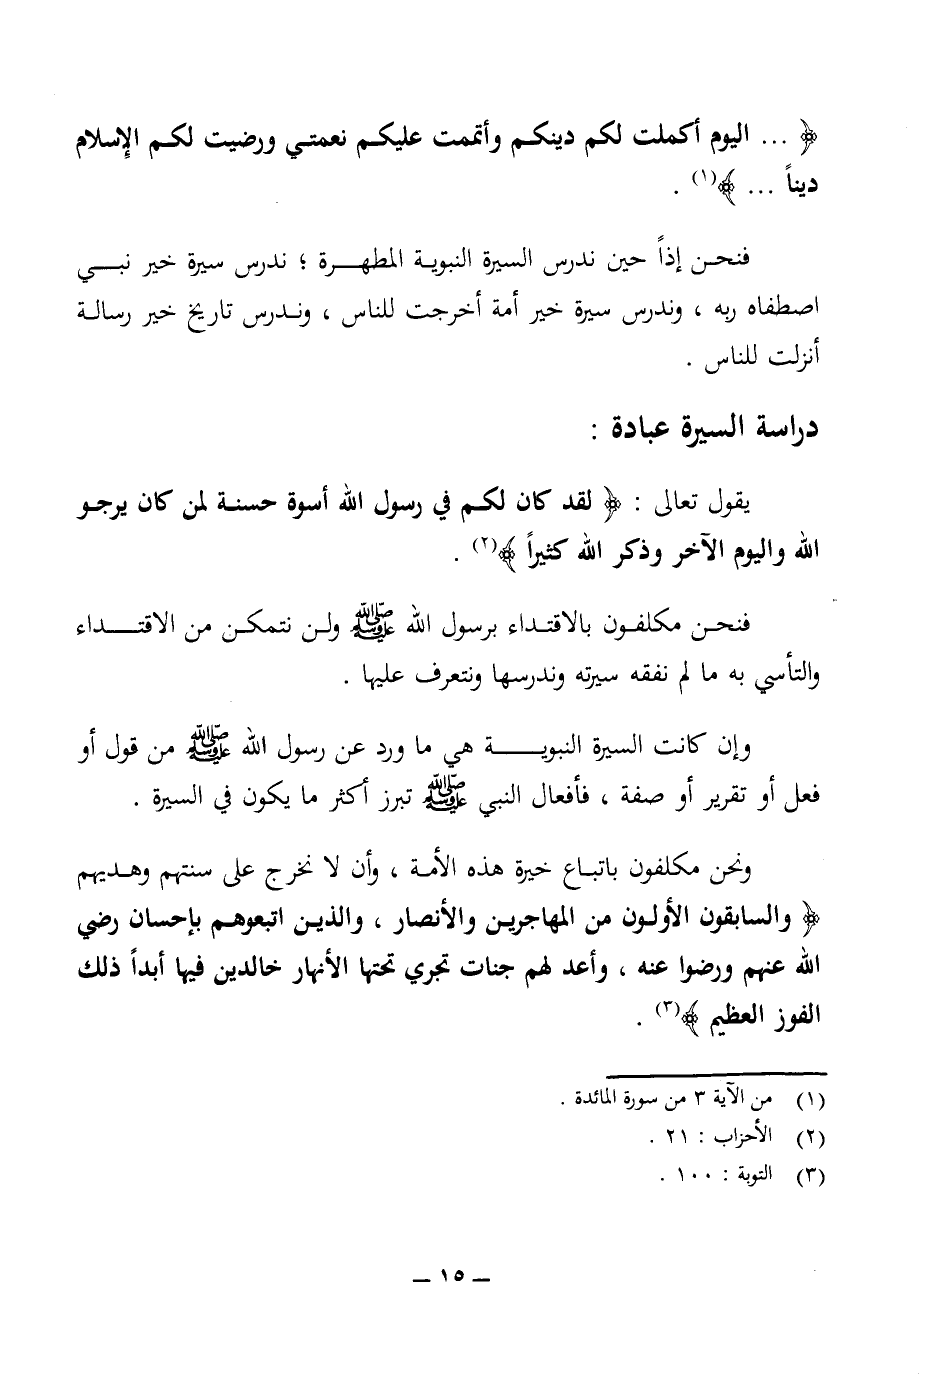 ﴿ ... اليوم أكملت لكم دينكم وأتممت عليكم نعمتي ورضيت لكم الإسلام
ديناً ... ﴾(١) .
فنحن إذاً حين ندرس السيرة النبوية المطهرة ؛ ندرس سيرة خير نبي
اصطفاه ربه ، وندرس سيرة خير أمة أخرجت للناس ، وندرس تاريخ خير رسالة
أنزلت للناس .
دراسة السيرة عبادة :
يقول تعالى : ﴿ لقد كان لكم في رسول الله أسوة حسنة لمن كان يرجو
الله واليوم الآخر وذكر الله كثيراً ﴾(٢) .
فنحن مكلفون بالاقتداء برسول الله ﷺ ولن نتمكن من الاقتداء
والتأسي به ما لم نفقه سيرته وندرسها ونتعرف عليها .
وإن كانت السيرة النبوية هي ما ورد عن رسول الله ﷺ من قول أو
فعل أو تقرير أو صفة ، فأفعال النبي ﷺ تبرز أكثر ما يكون في السيرة .
ونحن مكلفون باتباع خيرة هذه الأمة ، وأن لا نخرج على سنتهم وهديهم
﴿ والسابقون الأولون من المهاجرين والأنصار ، والذين اتبعوهم بإحسان رضي
الله عنهم ورضوا عنه ، وأعد لهم جنات تجري تحتها الأنهار خالدين فيها أبداً ذلك
الفوز العظيم ﴾(٣) .
(١) من الآية ٣ من سورة المائدة .
(٢) الأحزاب : ٢١ .
(٣) التوبة : ١٠٠ .
— ١٥ —